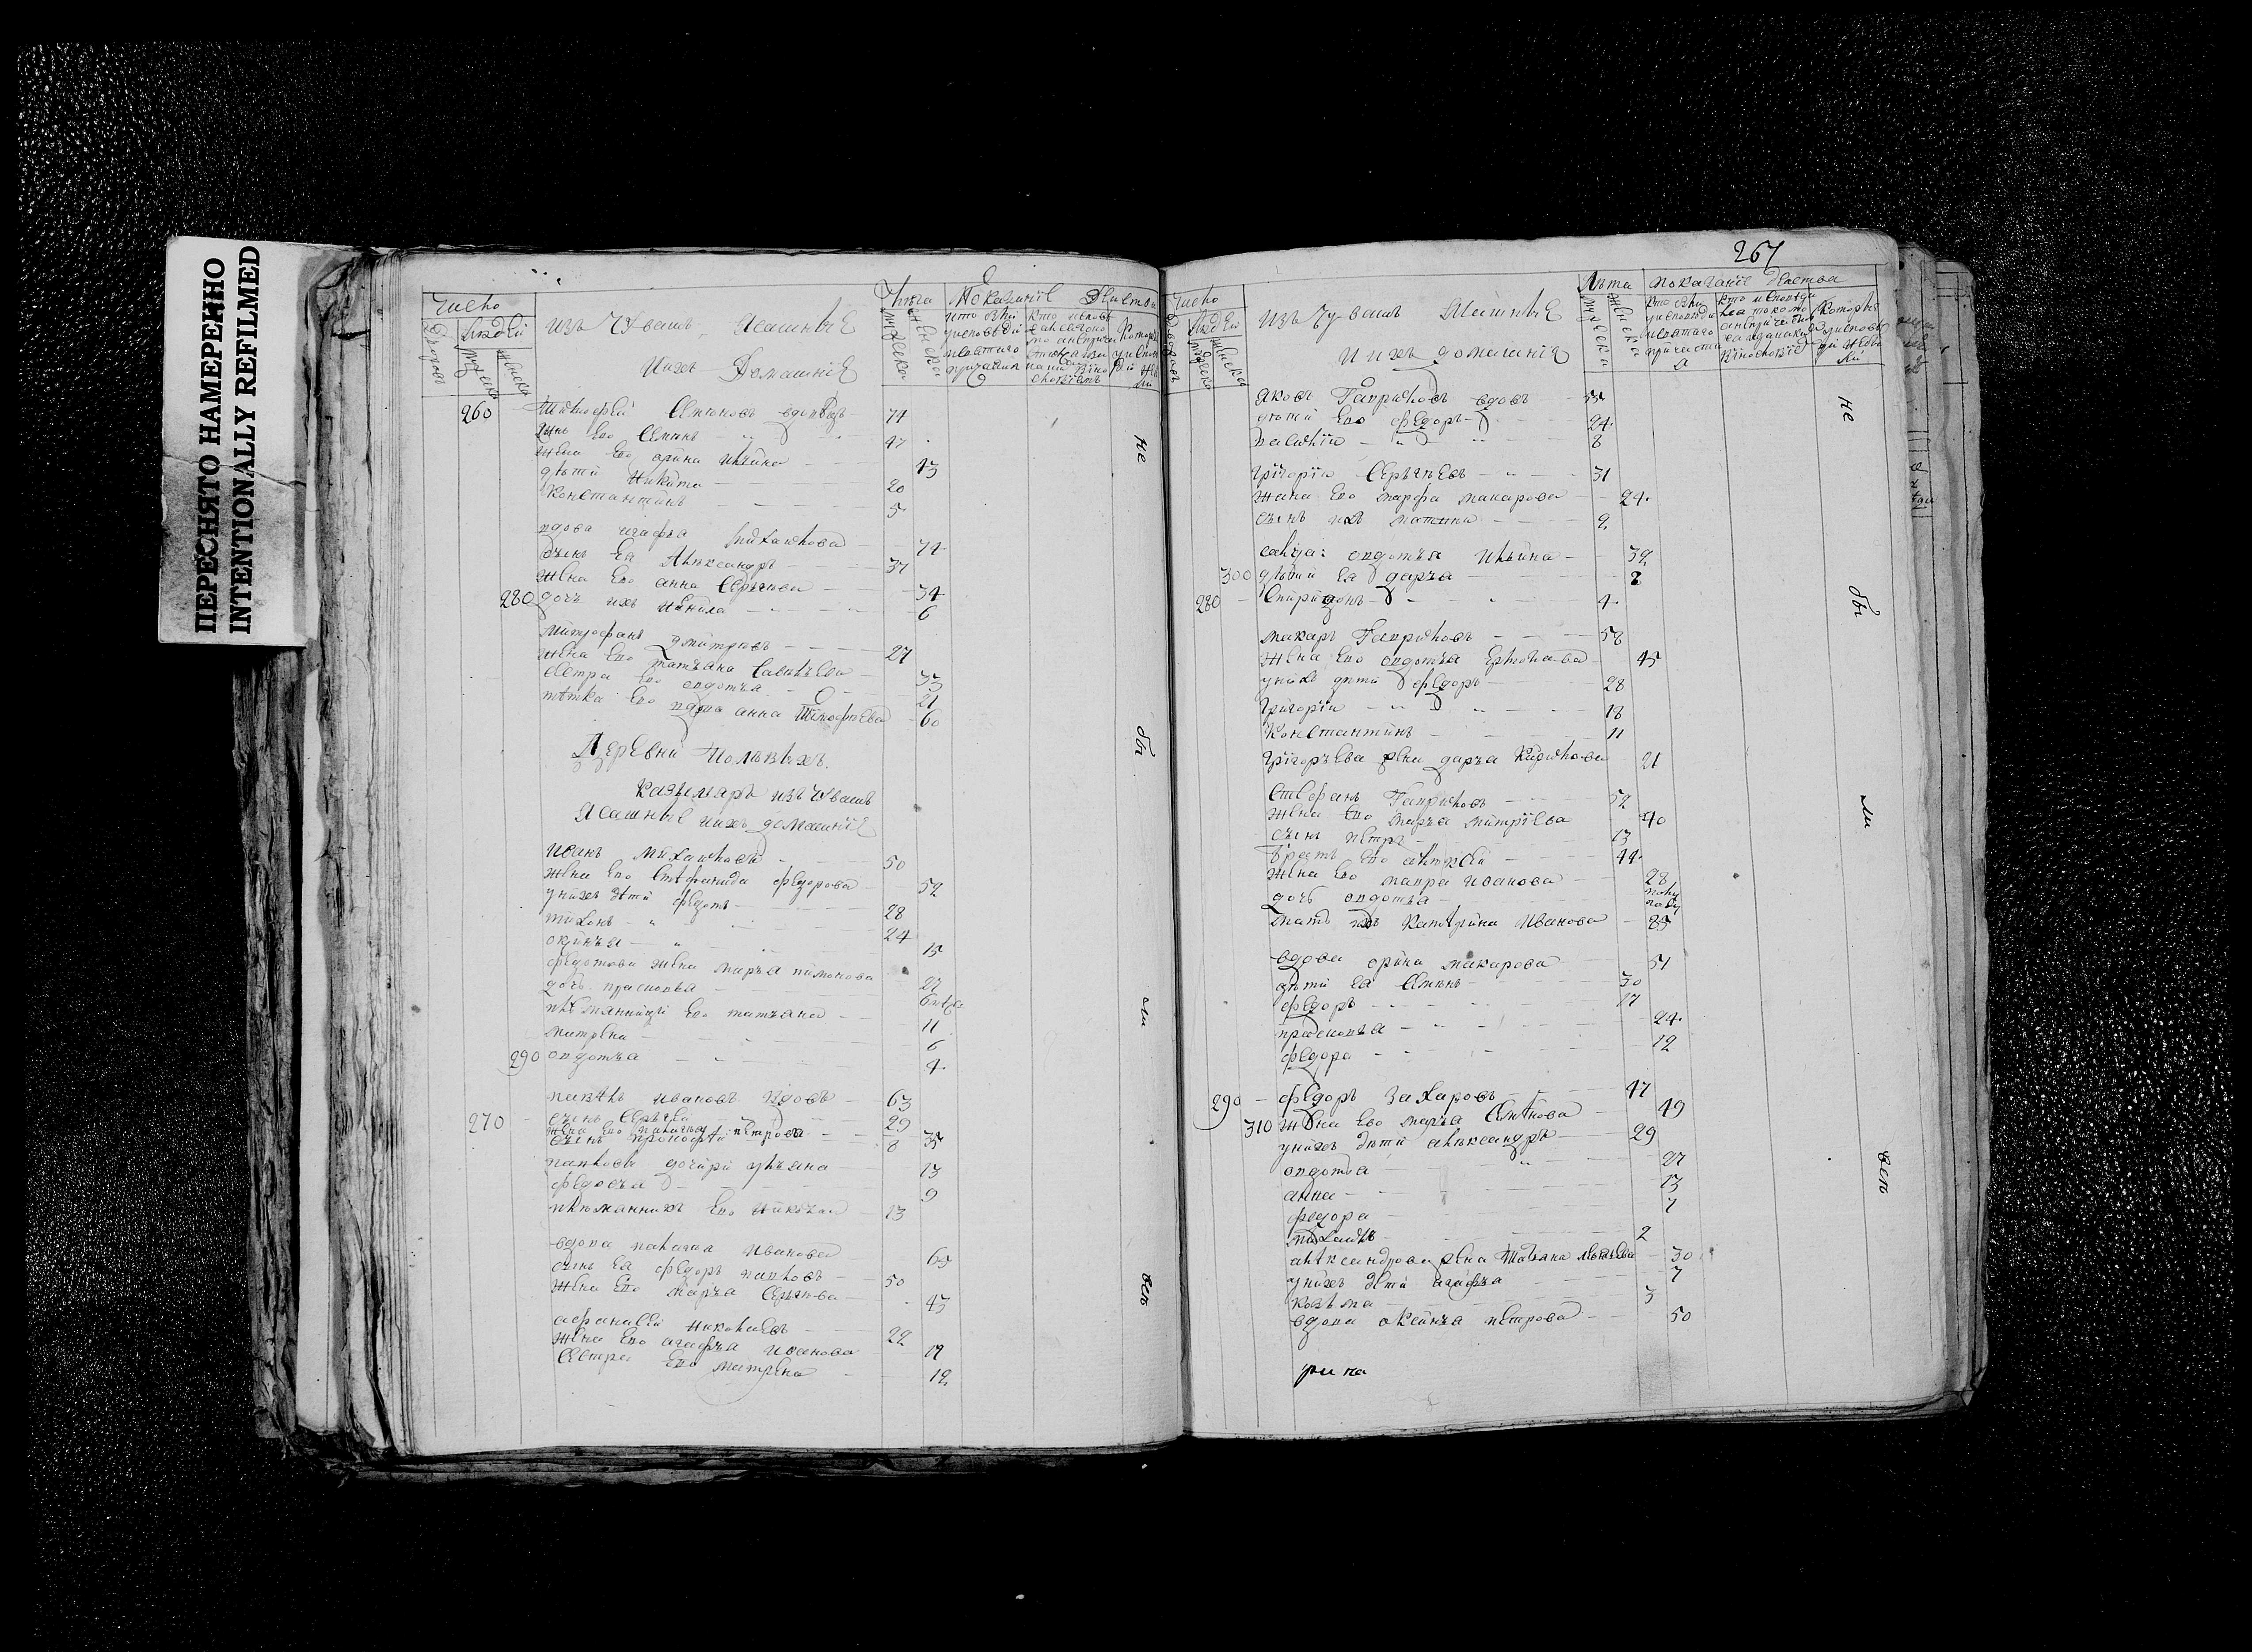 ПЕРЕСНЯТО НАМЕРЕННО
INTENTIONALLY REFILMED
Число
Людей
Дворовъ
мужска
женска
изъ Чувашъ Ясашные
ихъ Домашніе
Лѣта
мужска
женска
Показаніе Дѣиства
260
Тимофеи Семеновъ вдовецъ 74
Сынъ Ево Семенъ 47
Жена Ево орина ильина 43
дѣти Никита 20
Константинъ 5
вдова агафья михаилова 74
Сынъ Ея Александръ 37
Жена Ево анна Сергѣева 34
280 дочь ихъ ненила 6
Митрофанъ дмитревъ 27
Жена Ево татьяна Савельева 33
Сестра Ево овдотья 21
тѣтка Ево вдова анна Тимофѣева 60
Деревни Полевыхъ
изъ Чувашъ
Ясашные ихъ домашніе
Иванъ Михаиловъ 50
Жена Ево Стефанида федорова 52
у нихъ дѣти федотъ 28
тихонъ 24
окинья 15
федотова жена марья 27
дочь прасковья
племянницы Ево татьяна 11
матрена 6
290 овдотья 4
павелъ ивановъ вдовъ 63
270 сынъ Сергѣи 29
Жена Ево пелагея петрова 35
сынъ прокофеи 8
павлова дочири ульяна 13
федосья 9
племянникъ Ево николаи 13
вдова палагея Иванова 65
сынъ Ея федоръ павловъ 50
Жена Ево марья Сергѣева 43
афанасеи николаевъ 22
Жена Ево агафья иванова 19
Сестра Ево матрена 12
не
бы
ли
всѣ
267
Число
Людей
Дворовъ
мужска
женска
изъ Чувашъ Ясашные
и ихъ домашніе
Лѣта
мужска
женска
показаніе дѣиства
яковъ Гавриловъ вдовъ 55
дѣти Ево федоръ 24
василіи 8
григореи Сергѣевъ 31
жена Ево марфа макарова 24
сынъ ихъ 2
овдотья ильина 32
300 дѣти Ея дарья 8
280 Спиридонъ 4
макаръ Гавриловъ 58
Жена Ево овдотья Ермолаева 45
у нихъ дети федоръ 28
григореи 18
Константинъ 11
григорьева жена дарья Кирилова 21
Стефанъ Гавриловъ 52
Жена Ево марья митріева 40
сынъ петръ 13
братъ Ево алексеи 44
Жена Ево мавра иванова 28
дочь овдотья полу году
мать ихъ Катерина Иванова 85
вдова орина макарова 51
дѣти Ея Семенъ 30
федоръ 17
прасковья 24
федора 12
290 федоръ Захаровъ 47
310 Жена Ево марья Семенова 49
у нихъ дѣти александръ 29
овдотья 27
анна 13
федора 7
михаилъ 2
александрова жена Татьяна 30
у нихъ дѣти агафья 7
козьма 3
вдова оксинья петрова 50
не
бы
ли
всѣ